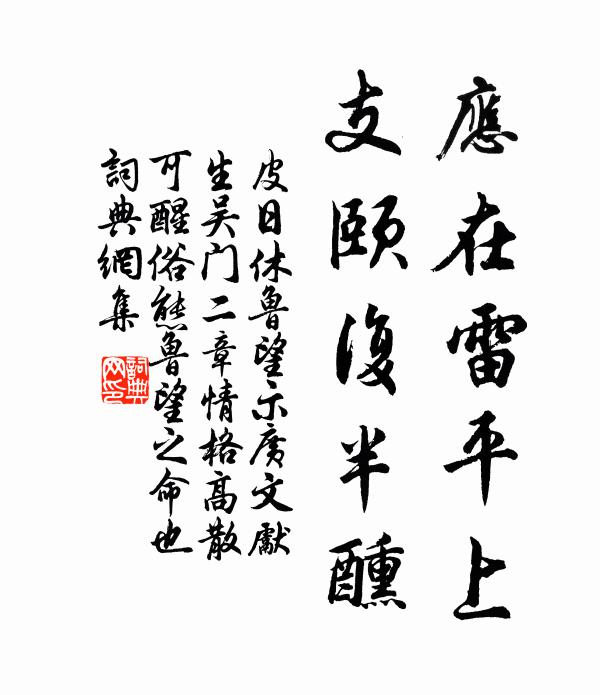 應在雷平上
支頤復半醺
皮日休魯望示廣文獻
生吴门二章情格高散
可醒俗態魯望之命也
詞典網集
詞典
网印